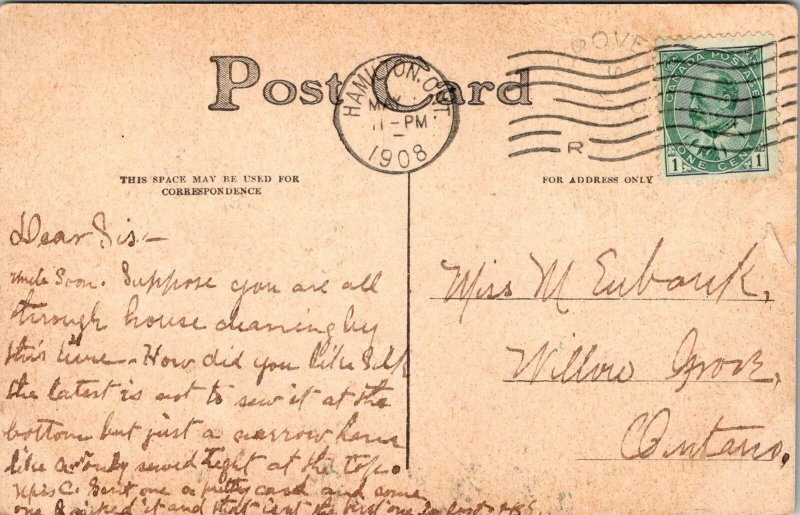 Post Card
HAMILTON. ONT.
MAY
11-PM
1908
R
CANADA POSTAGE
1 ONE CENT 1
THIS SPACE MAY BE USED FOR
CORRESPONDENCE
FOR ADDRESS ONLY
Dear Sis,-
Soon. Suppose you are all
through house cleaning by
this time. How did you like Silk
the latest is not to sew it at the
bottom but just a narrow hem
like only sewed tight at the top.
Miss C. Sent one a pretty card and some
one it and that isn't the first one
Miss M Eubank,
Willow Grove,
Ontario.